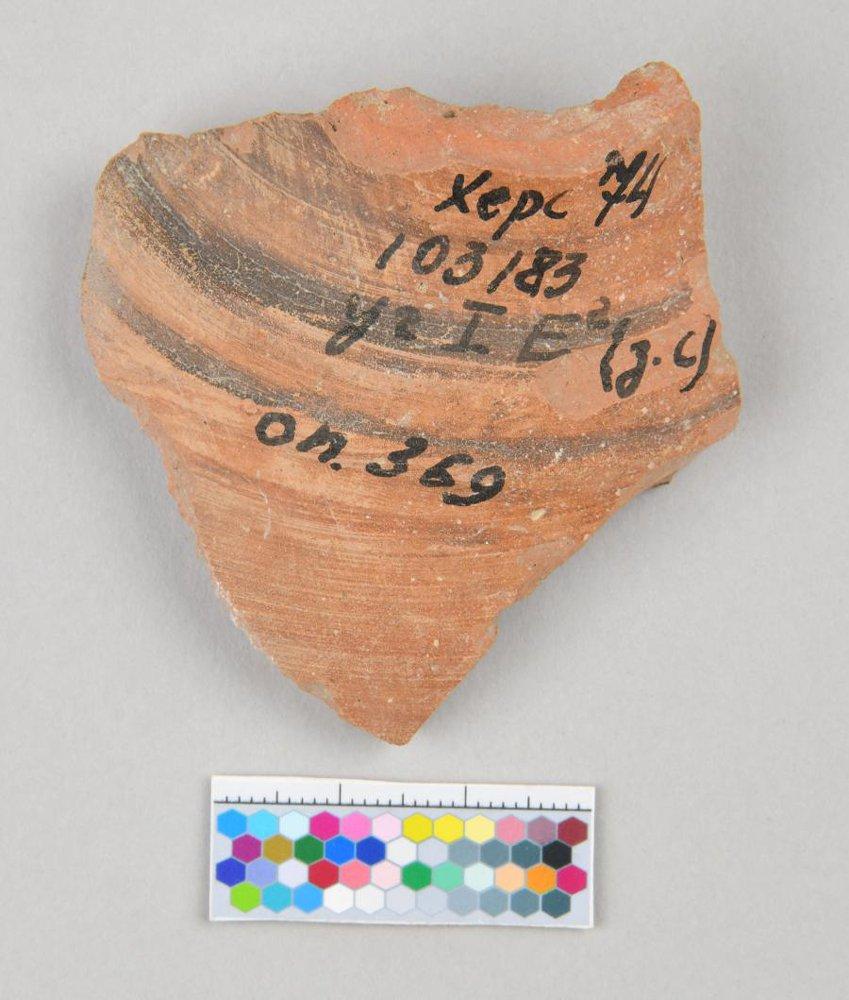 Херс 74
103183
уг I E² (д.с)
оп. 369